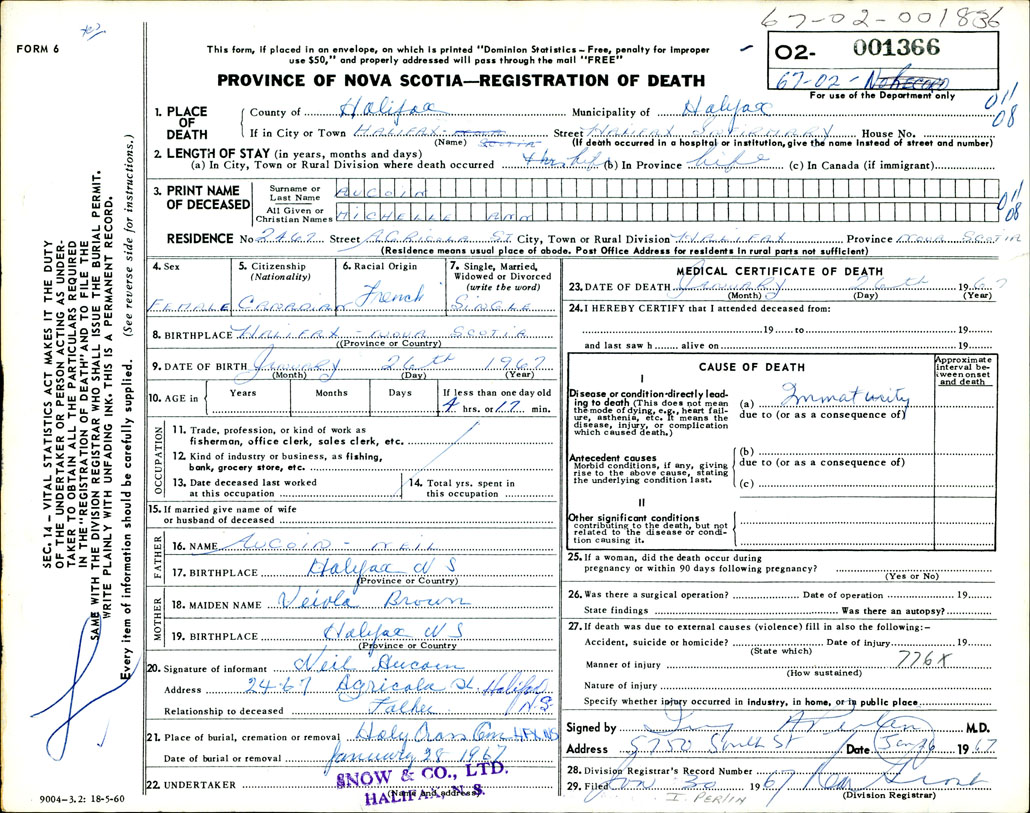 67-02-001836
FORM 6
This form, if placed in an envelope, on which is printed "Dominion Statistics – Free, penalty for improper
use $50," and properly addressed will pass through the mail "FREE"
O2- 001366
67-02- No RECORD
For use of the Department only
PROVINCE OF NOVA SCOTIA—REGISTRATION OF DEATH
011
08
1. PLACE OF DEATH
County of Halifax Municipality of Halifax
If in City or Town HALIFAX - NOVA SCOTIA Street HALIFAX INFIRMARY House No.
(Name) (If death occurred in a hospital or institution, give the name instead of street and number)
2. LENGTH OF STAY (in years, months and days)
(a) In City, Town or Rural Division where death occurred (b) In Province life (c) In Canada (if immigrant)
3. PRINT NAME OF DECEASED
Surname or Last Name AUCOIN
All Given or Christian Names MICHELLE ANN
011
08
RESIDENCE No 2467 Street AGRICOLA ST City, Town or Rural Division HALIFAX Province NOVA SCOTIA
(Residence means usual place of abode. Post Office Address for residents in rural parts not sufficient)
4. Sex
FEMALE
5. Citizenship (Nationality)
CANADIAN
6. Racial Origin
French
7. Single, Married, Widowed or Divorced (write the word)
SINGLE
8. BIRTHPLACE HALIFAX - NOVA SCOTIA
(Province or Country)
9. DATE OF BIRTH January 26th 1967
(Month) (Day) (Year)
10. AGE in Years Months Days If less than one day old
4 hrs. or 17 min.
OCCUPATION
11. Trade, profession, or kind of work as
fisherman, office clerk, sales clerk, etc.
12. Kind of industry or business, as fishing,
bank, grocery store, etc.
13. Date deceased last worked
at this occupation
14. Total yrs. spent in
this occupation
15. If married give name of wife
or husband of deceased
FATHER
16. NAME AUCOIN - NEIL
17. BIRTHPLACE Halifax N S
(Province or Country)
MOTHER
18. MAIDEN NAME Veiola Brown
19. BIRTHPLACE Halifax N S
(Province or Country
20. Signature of informant Neil Aucoin
Address 2467 Agricola St. Halifax
Relationship to deceased Father N.S.
21. Place of burial, cremation or removal Holy Cross Cem HFX NS
Date of burial or removal January 28 1967
22. UNDERTAKER SNOW & CO., LTD.
(Name and address)
HALIFAX, N. S.
9004-3.2: 18-5-60
MEDICAL CERTIFICATE OF DEATH
23. DATE OF DEATH January 26th 1967
(Month) (Day) (Year)
24. I HEREBY CERTIFY that I attended deceased from:
19 to 19
and last saw h alive on 19
CAUSE OF DEATH
Approximate interval between onset and death
I
Disease or condition directly leading to death (This does not mean the mode of dying, e.g., heart failure, asthenia, etc. It means the disease, injury, or complication which caused death.)
(a) Immaturity
due to (or as a consequence of)
Antecedent causes
Morbid conditions, if any, giving rise to the above cause, stating the underlying condition last.
(b)
due to (or as a consequence of)
(c)
II
Other significant conditions
contributing to the death, but not related to the disease or condition causing it.
25. If a woman, did the death occur during
pregnancy or within 90 days following pregnancy?
(Yes or No)
26. Was there a surgical operation? Date of operation 19
State findings Was there an autopsy?
27. If death was due to external causes (violence) fill in also the following:–
Accident, suicide or homicide? Date of injury 19
(State which)
Manner of injury 776X
(How sustained)
Nature of injury
Specify whether injury occurred in industry, in home, or in public place
Signed by M.D.
Address 5750 South St Date Jan 26 1967
28. Division Registrar's Record Number
29. Filed Jan 30 1967
(Division Registrar)
I. PERLIN
SEC. 14 – VITAL STATISTICS ACT MAKES IT THE DUTY
OF THE UNDERTAKER OR PERSON ACTING AS UNDER-
TAKER TO OBTAIN ALL THE PARTICULARS REQUIRED
IN THE "REGISTRATION OF DEATH" AND TO FILE THE
SAME WITH THE DIVISION REGISTRAR WHO SHALL ISSUE THE BURIAL PERMIT.
WRITE PLAINLY WITH UNFADING INK. THIS IS A PERMANENT RECORD.
Every item of information should be carefully supplied. (See reverse side for instructions.)